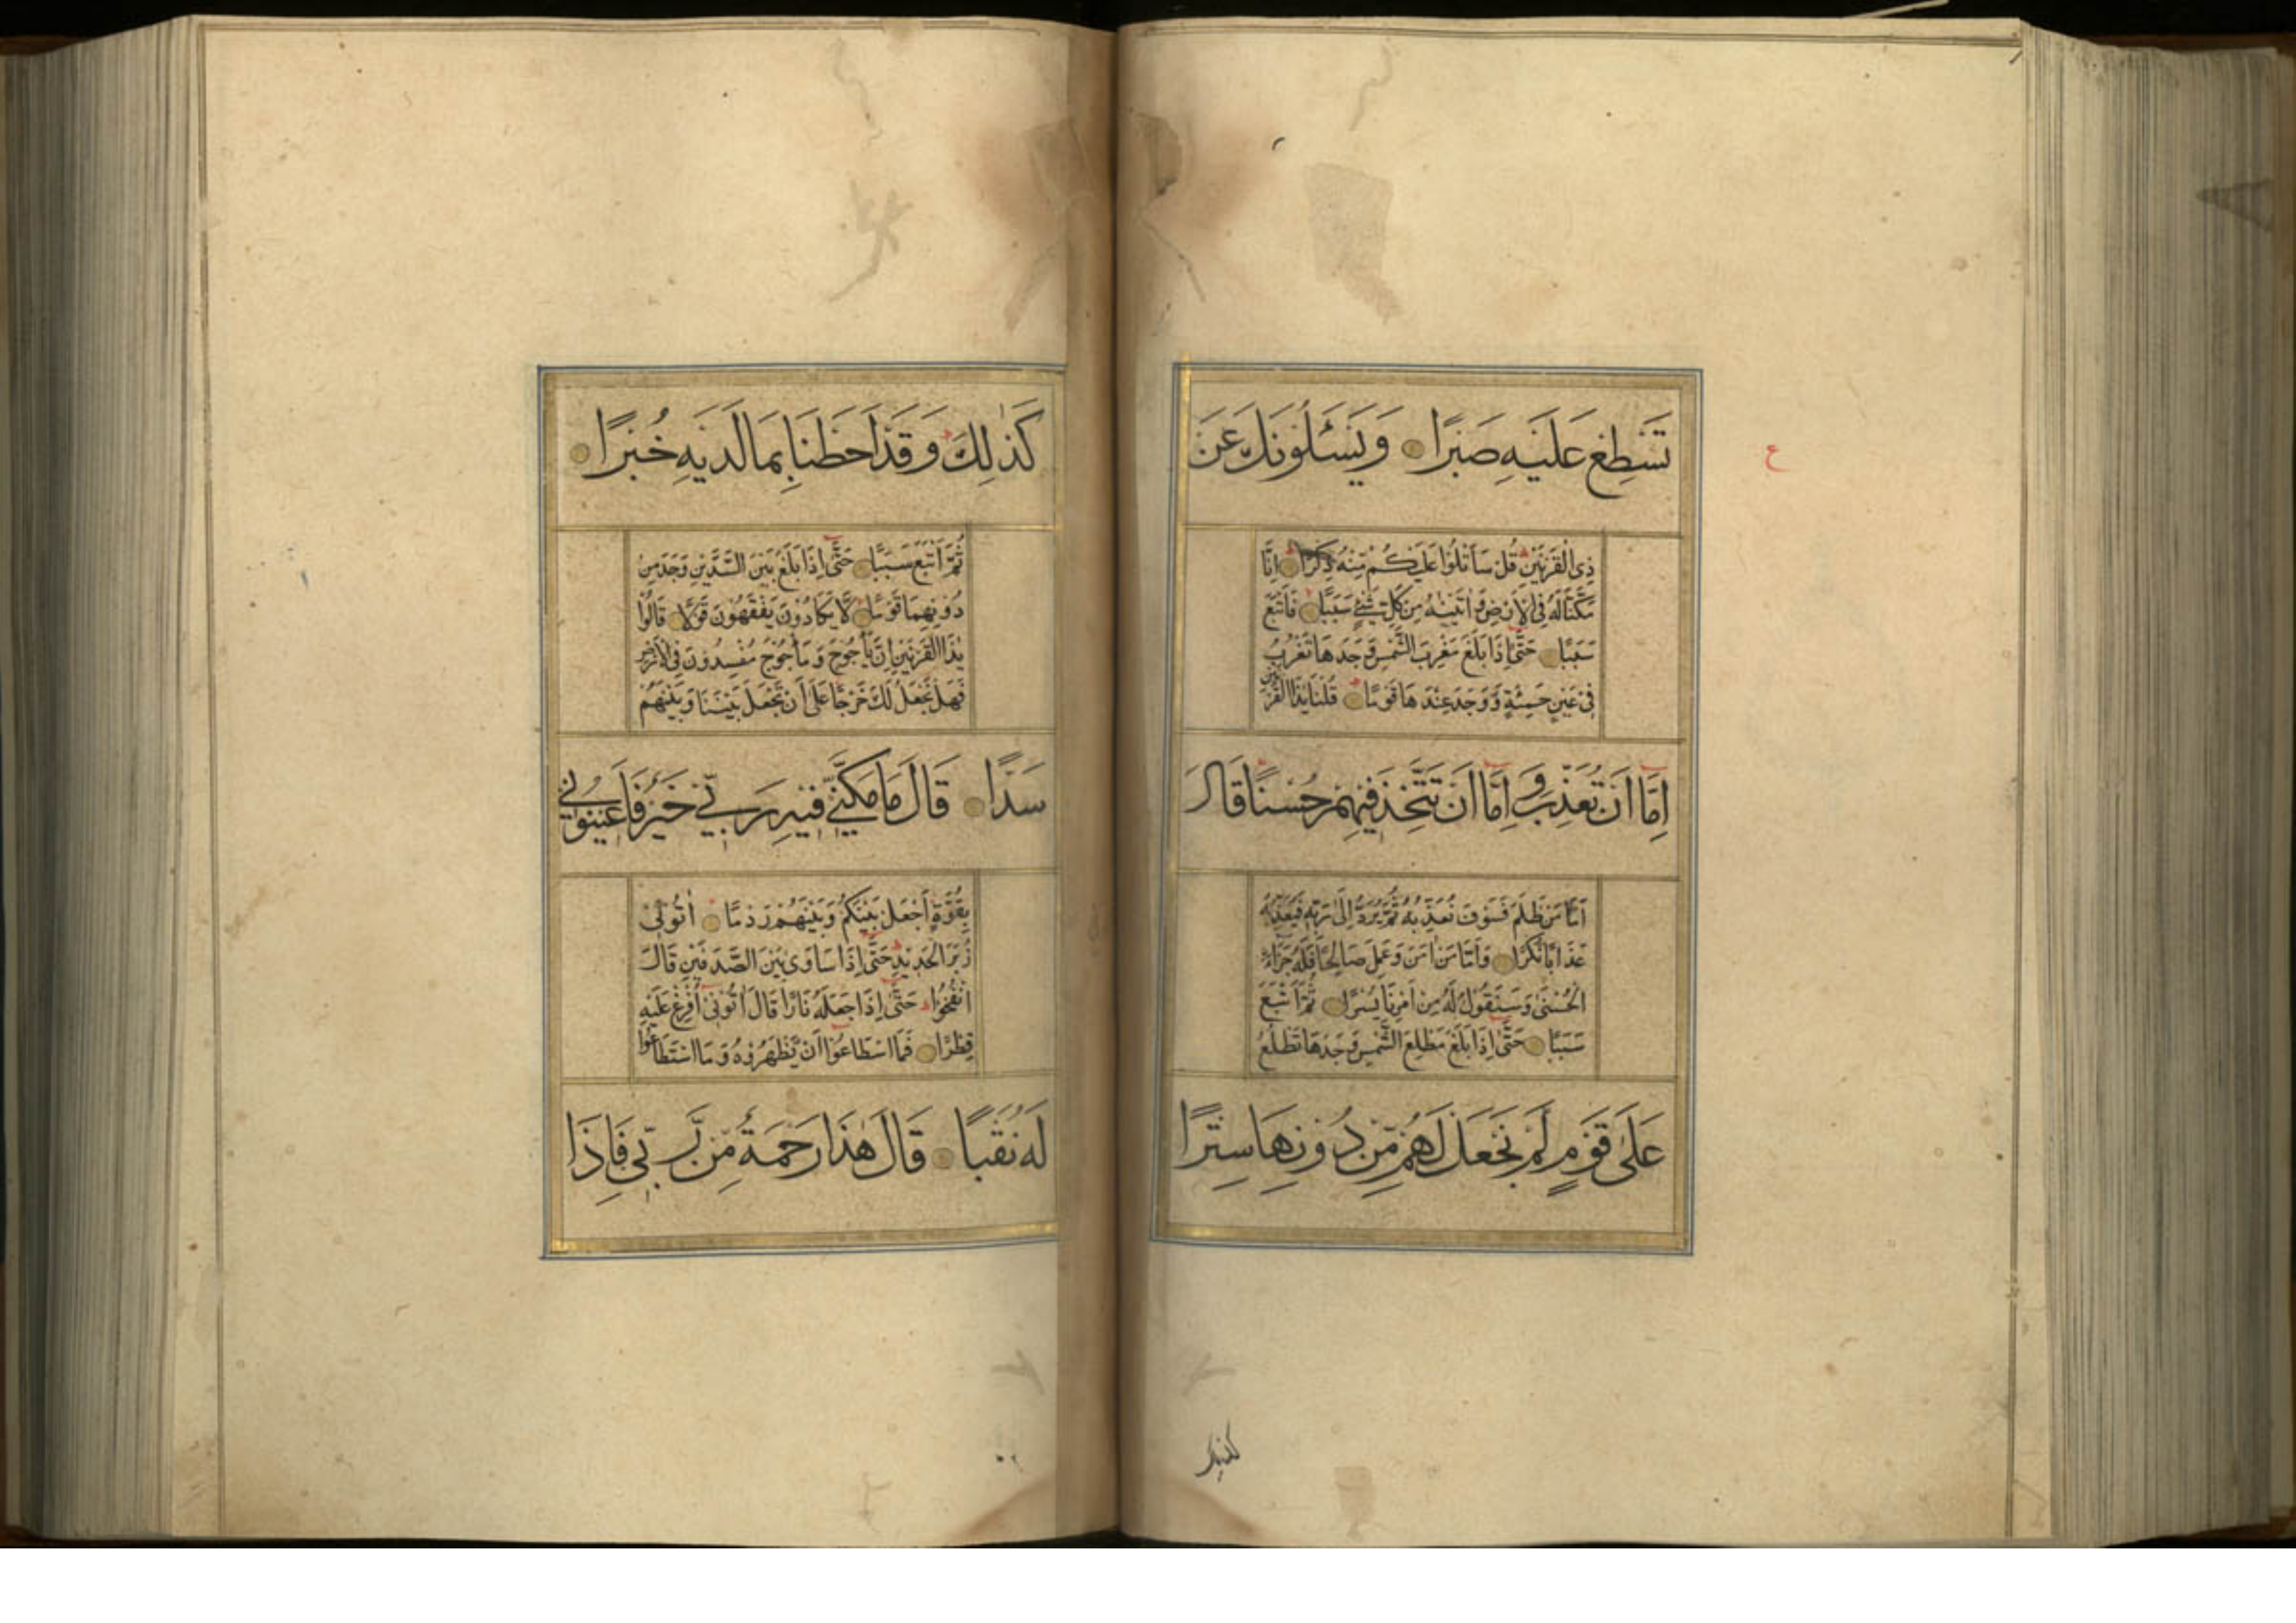 ع
تَسْطِعْ عَلَيْهِ صَبْرًا وَيَسْـَٔلُونَكَ عَنْ
ذِى الْقَرْنَيْنِ قُلْ سَاَتْلُوا عَلَيْكُمْ مِنْهُ ذِكْرًا اِنَّا
مَكَّنَّا لَهُ فِى الْاَرْضِ وَاٰتَيْنٰهُ مِنْ كُلِّ شَىْءٍ سَبَبًا فَاَتْبَعَ
سَبَبًا حَتّٰى اِذَا بَلَغَ مَغْرِبَ الشَّمْسِ وَجَدَهَا تَغْرُبُ
فِى عَيْنٍ حَمِئَةٍ وَّوَجَدَ عِنْدَهَا قَوْمًا قُلْنَا يٰذَا الْقَرْنَيْنِ
اِمَّا اَنْ تُعَذِّبَ وَاِمَّا اَنْ تَتَّخِذَ فِيْهِمْ حُسْنًا قَالَ
اَمَّا مَنْ ظَلَمَ فَسَوْفَ نُعَذِّبُهُ ثُمَّ يُرَدُّ اِلٰى رَبِّهِ فَيُعَذِّبُهُ
عَذَابًا نُكْرًا وَاَمَّا مَنْ اٰمَنَ وَعَمِلَ صَالِحًا فَلَهُ جَزَآءً
الْحُسْنٰى وَسَنَقُوْلُ لَهُ مِنْ اَمْرِنَا يُسْرًا ثُمَّ اَتْبَعَ
سَبَبًا حَتّٰى اِذَا بَلَغَ مَطْلِعَ الشَّمْسِ وَجَدَهَا تَطْلُعُ
عَلٰى قَوْمٍ لَمْ نَجْعَلْ لَهُمْ مِّنْ دُوْنِهَا سِتْرًا
كَذٰلِكَ وَقَدْ اَحَطْنَا بِمَا لَدَيْهِ خُبْرًا
ثُمَّ اَتْبَعَ سَبَبًا حَتّٰى اِذَا بَلَغَ بَيْنَ السَّدَّيْنِ وَجَدَ مِنْ
دُوْنِهِمَا قَوْمًا لَا يَكَادُوْنَ يَفْقَهُوْنَ قَوْلًا قَالُوْا
يٰذَا الْقَرْنَيْنِ اِنَّ يَأْجُوْجَ وَمَأْجُوْجَ مُفْسِدُوْنَ فِى الْاَرْضِ
فَهَلْ نَجْعَلُ لَكَ خَرْجًا عَلٰى اَنْ تَجْعَلَ بَيْنَنَا وَبَيْنَهُمْ
سَدًّا قَالَ مَا مَكَّنِّىْ فِيْهِ رَبِّىْ خَيْرٌ فَاَعِيْنُوْنِىْ
بِقُوَّةٍ اَجْعَلْ بَيْنَكُمْ وَبَيْنَهُمْ رَدْمًا اٰتُوْنِىْ
زُبَرَ الْحَدِيْدِ حَتّٰى اِذَا سَاوٰى بَيْنَ الصَّدَفَيْنِ قَالَ
انْفُخُوْا حَتّٰى اِذَا جَعَلَهُ نَارًا قَالَ اٰتُوْنِىْ اُفْرِغْ عَلَيْهِ
قِطْرًا فَمَا اسْطَاعُوْا اَنْ يَّظْهَرُوْهُ وَمَا اسْتَطَاعُوْا
لَهُ نَقْبًا قَالَ هٰذَا رَحْمَةٌ مِّنْ رَّبِّىْ فَاِذَا